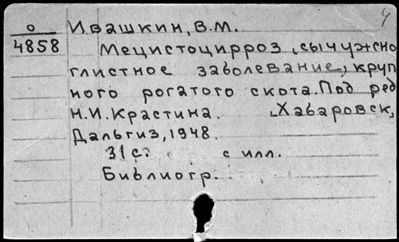 О
4858
Ивашкин, В.М.
Мецистоцирроз, сычужно
глистное заболевание, круп
ного рогатого скота. Под ред
Н.И. Крастина. Хабаровск,
Дальгиз, 1948.
31с. с илл.
Библиогр.